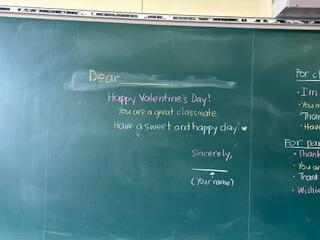 Dear
Happy Valentine's Day!
You are a great classmate.
Have a sweet and happy day! ♥
Sincerely,
(Your name)
For
• I'm
• You
Thank
• Have
For
• Thank
• You
• Thank